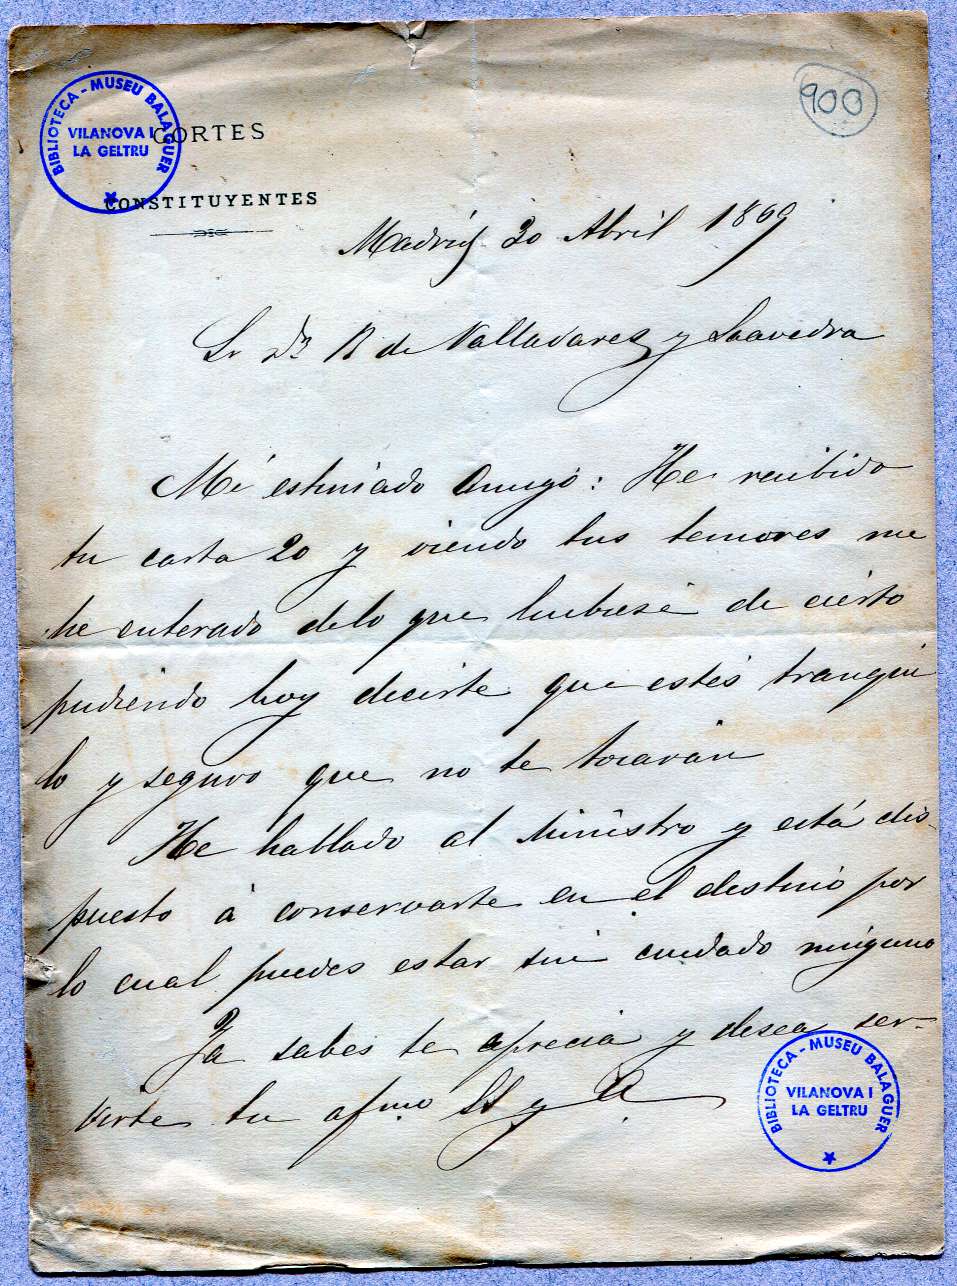 BIBLIOTECA - MUSEU BALAGUER
VILANOVA I
LA GELTRU
900
CORTES
CONSTITUYENTES
Madrid 30 Abril 1869
Sr Dn R de Valladares y Saavedra
Mi estimado Amigo: He recibido
tu carta 20 y viendo tus temores me
he enterado delo que hubiese de cierto
pudiendo hoy decirte que estés tranqui
lo y seguro que no te tocarán
He hablado al Ministro y está dis-
puesto á conservarte en el destino por
lo cual puedes estar sin cuidado ninguno
Ya sabes te aprecia y desea ser-
virte tu afmo SS y A
BIBLIOTECA - MUSEU BALAGUER
VILANOVA I
LA GELTRU